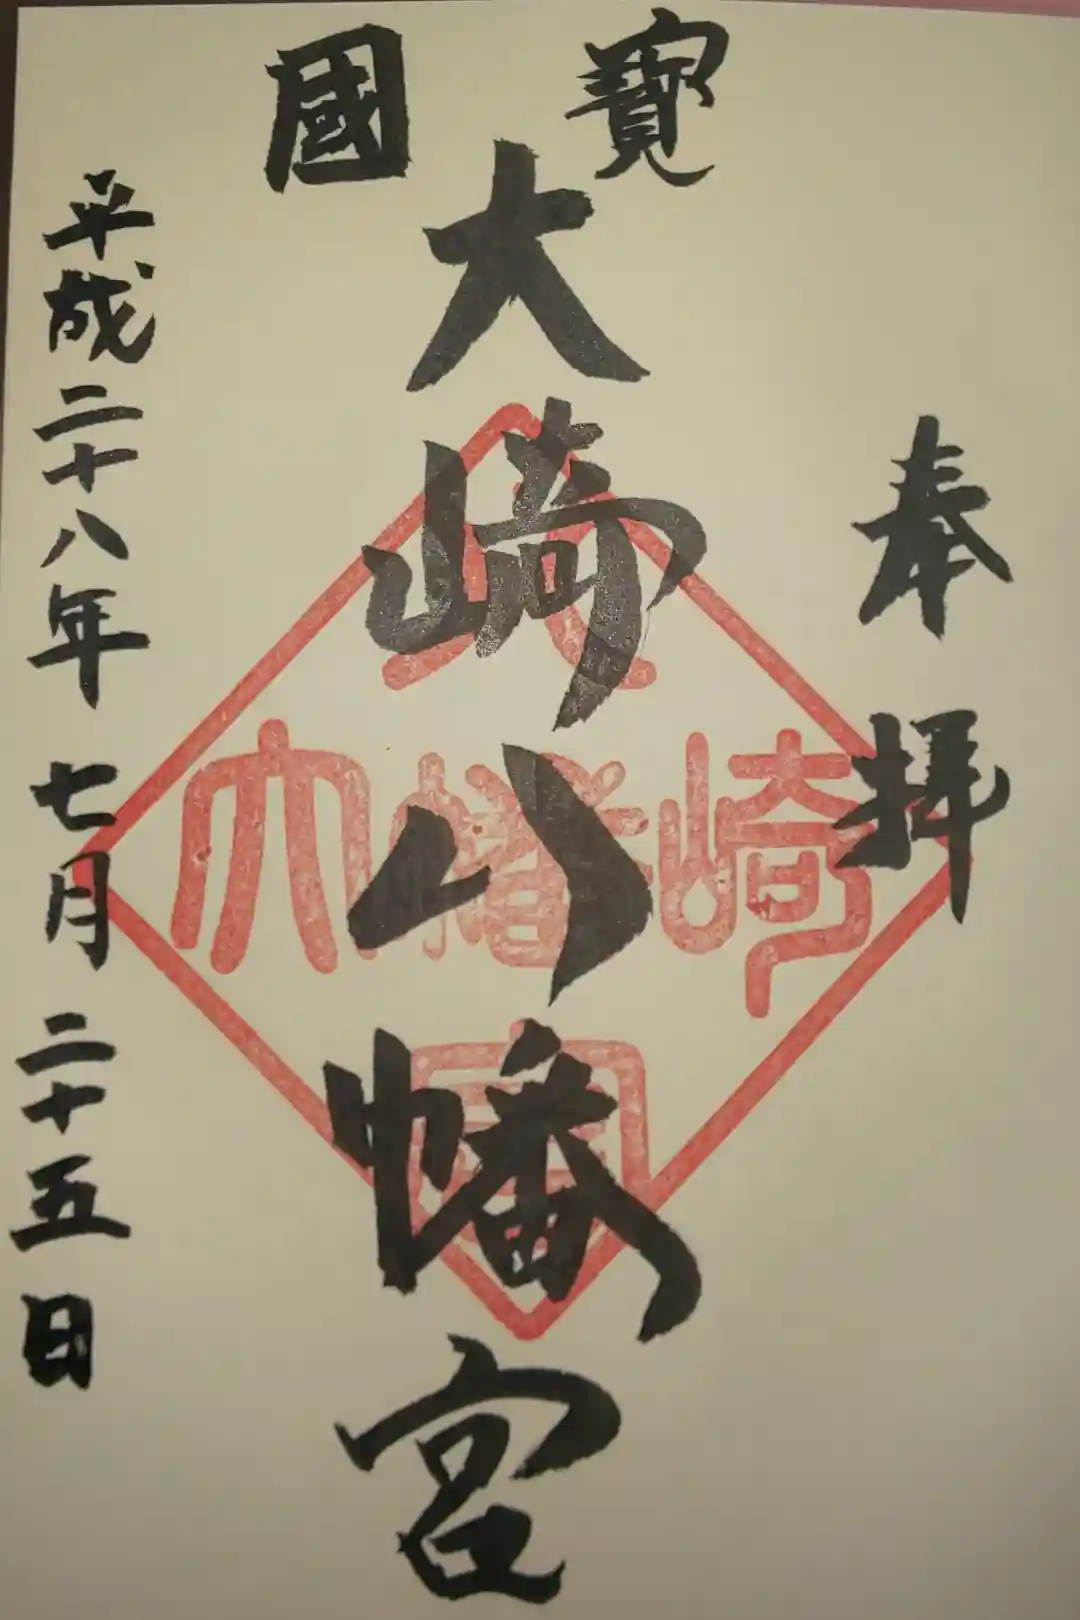 奉拝
國寳
大崎八幡宮
平成二十八年七月二十五日
大崎八幡宮